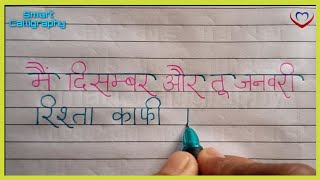 Smart
Calligraphy
मैं दिसम्बर और तू जनवरी
रिश्ता काफी